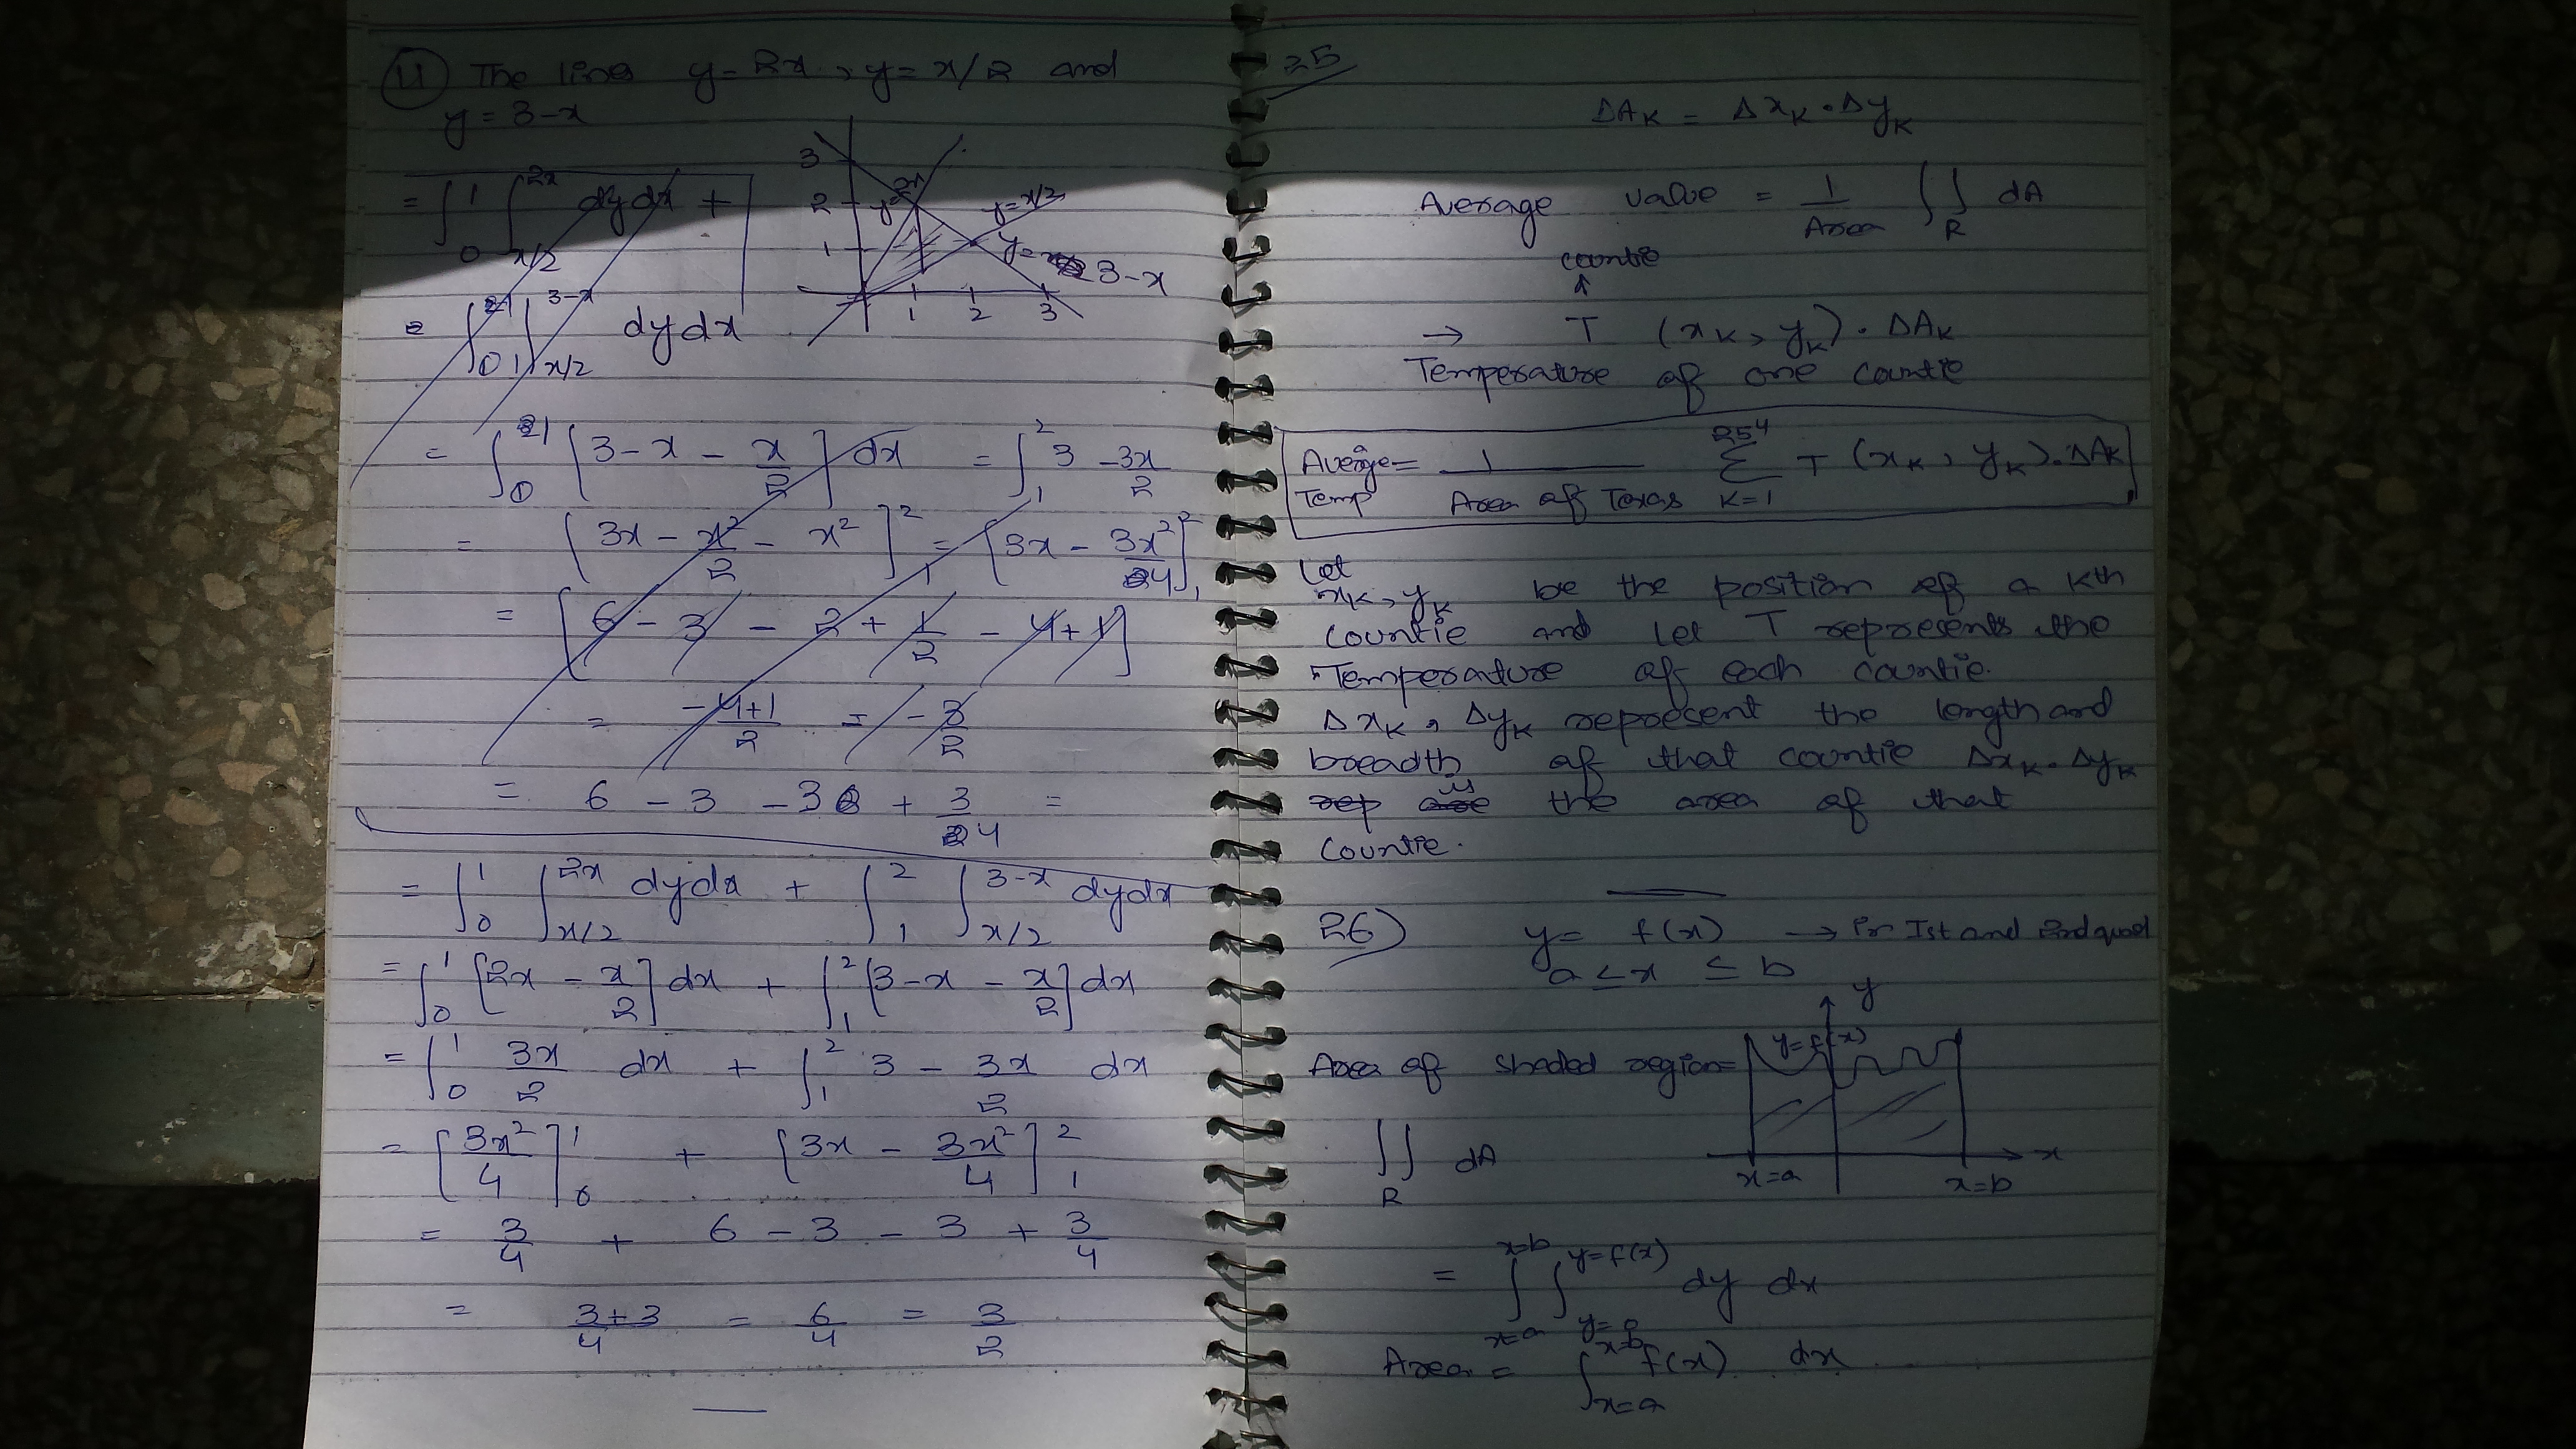 11 The lines y = 2x, y = x/2 and
y = 3-x
= ∫₀¹ ∫_{x/2}^{2x} dy dx +
3
2
1
y=2x
y=x/2
y= 3-x
1 2 3
= ∫ ∫_{x/2}^{3-x} dy dx
= ∫ [3-x - x/2] dx = ∫₁² 3 - 3x/2
= [3x - x²/2 - x²]₁² = [3x - 3x²/4]₁²
= [6 - 3 - 2 + 1/2 - 4 + 1]
= (-4+1)/2 = -3/2
= 6 - 3 - 3 + 3/4 =
= ∫₀¹ ∫_{x/2}^{2x} dy dx + ∫₁² ∫_{x/2}^{3-x} dy dx
= ∫₀¹ [2x - x/2] dx + ∫₁² [3-x - x/2] dx
= ∫₀¹ 3x/2 dx + ∫₁² 3 - 3x/2 dx
= [3x²/4]₀¹ + [3x - 3x²/4]₁²
= 3/4 + 6 - 3 - 3 + 3/4
= (3+3)/4 = 6/4 = 3/2
25
ΔA_K = Δx_K · Δy_K
Average value = 1/Area ∫∫_R dA
countie
↑
→ T (x_K, y_K) · ΔA_K
Temperature of one countie
Average Temp = 1/(Area of Texas) Σ_{K=1}^{254} T (x_K, y_K) · ΔA_K
Let
x_K, y_K be the position of a Kth
countie and let T represents the
Temperature of each countie.
Δx_K, Δy_K represent the length and
breadth of that countie Δx_K · Δy_K
rep are is the area of that
countie.
26) y = f(x) → in Ist and 2nd quad
a ≤ x ≤ b
y
y=f(x)
Area of shaded region =
∫∫_R dA
x=a x=b x
= ∫_{x=a}^{x=b} ∫_{y=0}^{y=f(x)} dy dx
Area = ∫_{x=a}^{x=b} f(x) dx